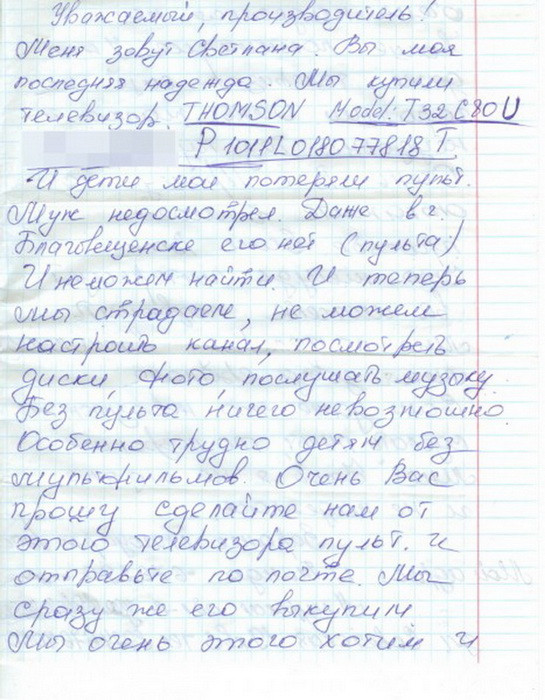 Уважаемый, производитель!
Меня зовут Светлана. Вы моя
последняя надежда. Мы купили
телевизор. THOMSON Model: T32C80U
P1011L018077818T
И дети мои потеряли пульт.
Муж недосмотрел. Даже в г.
Благовещенске его нет (пульта)
И неможем найти. И теперь
мы страдаем, не можем
настроить канал, посмотреть
диски, фото, послушать музыку.
Без пульта ничего невозможно.
Особенно трудно детям без
мультфильмов. Очень Вас
прошу сделайте нам от
этого телевизора пульт. и
отправьте по почте. Мы
сразу же его выкупим
Мы очень этого хотим и